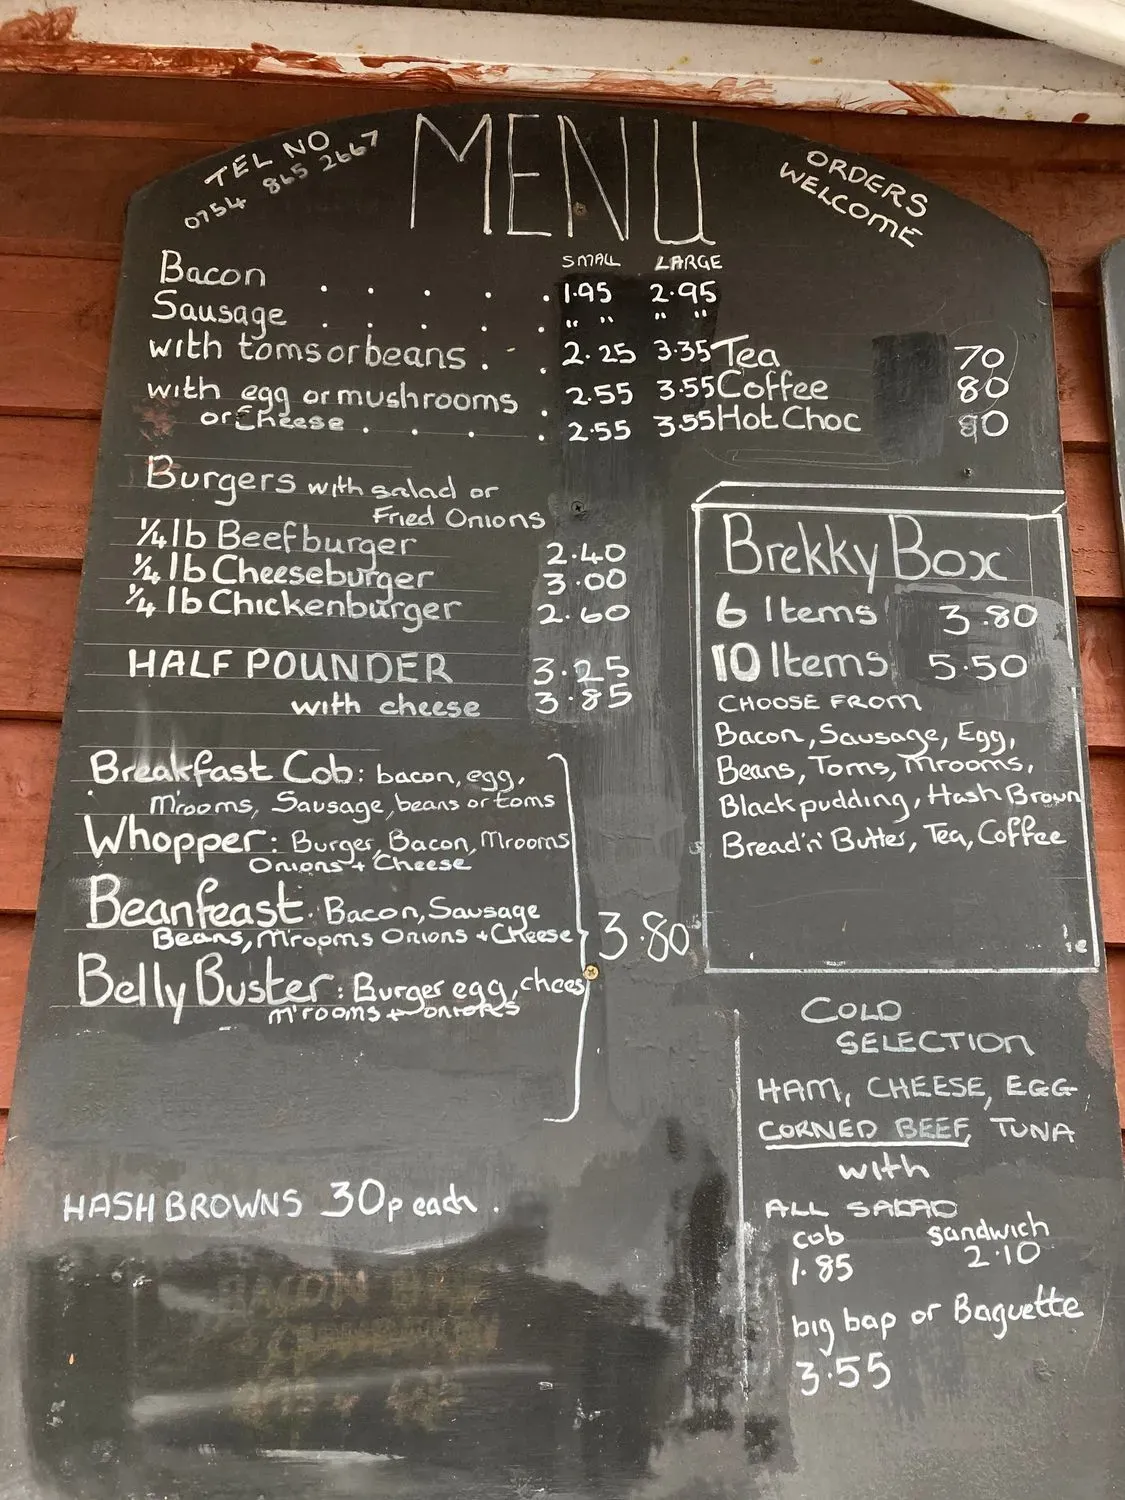 TEL NO
0754 865 2667
MENU
ORDERS
WELCOME
SMALL LARGE
Bacon . . . . . 1.95 2.95
Sausage . . . . . " " " "
with toms or beans . . . 2.25 3.35
with egg or mushrooms . 2.55 3.55
or Cheese . . . . 2.55 3.55
Tea 70
Coffee 80
Hot Choc 90
Burgers with salad or
Fried Onions
1/4 lb Beefburger 2.40
1/4 lb Cheeseburger 3.00
1/4 lb Chickenburger 2.60
HALF POUNDER 3.25
with cheese 3.85
Breakfast Cob: bacon, egg,
M'rooms, Sausage, beans or toms
Whopper: Burger, Bacon, Mrooms
Onions + Cheese
Beanfeast. Bacon, Sausage
Beans, M'rooms Onions + Cheese
3.80
Belly Buster: Burger egg, chees
m'rooms + onions
HASH BROWNS 30p each.
Brekky Box
6 Items 3.80
10 Items 5.50
CHOOSE FROM
Bacon, Sausage, Egg,
Beans, Toms, Mrooms,
Black pudding, Hash Brown
Bread 'n' Butter, Tea, Coffee
COLD
SELECTION
HAM, CHEESE, EGG
CORNED BEEF, TUNA
with
ALL SALAD
cob sandwich
1.85 2.10
big bap or Baguette
3.55